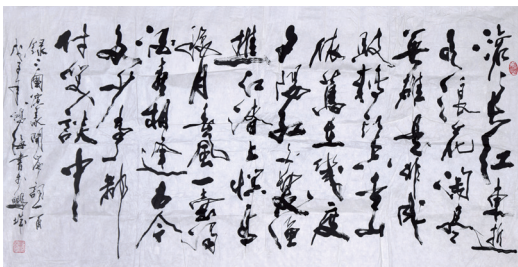 滚〻長江東逝
水浪花淘盡
英雄是非成
敗轉頭空青山
依舊在幾度
夕陽紅白髮漁
樵江渚上慣看
秋月春風一壺濁
酒喜相逢古今
多少事都
付笑談中
錄三國演義開篇詞一首
海書於鵬城